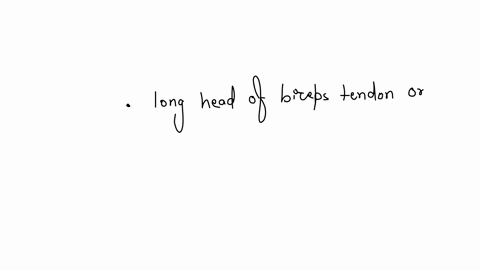 . long head of biceps tendon or